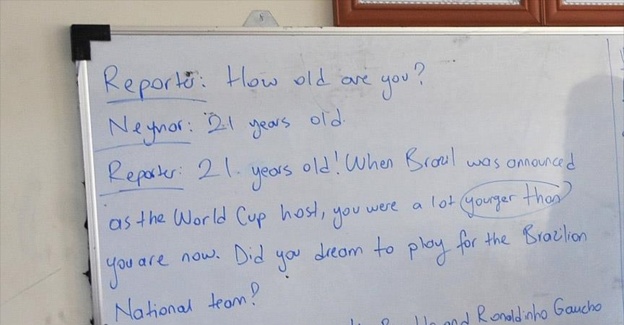 Reporter: How old are you?
Neymar: 21 years old.
Reporter: 21 years old! When Brazil was announced
as the World Cup host, you were a lot younger than
you are now. Did you dream to play for the Brazilian
National team?
and Ronaldinho Gaucho